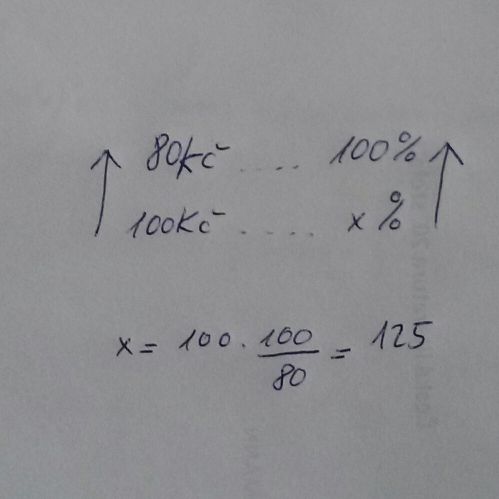 80Kč .... 100%
100Kč .... x%
x = 100 · 100/80 = 125